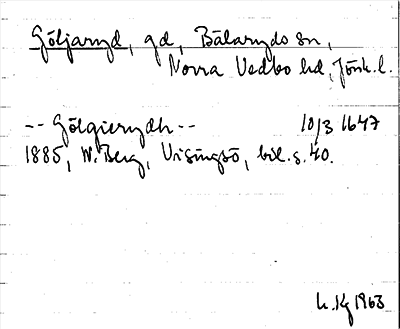 Göljaryd, gd, Bälaryds sn,
Norra Vedbo hd, Jönk. l.
-- Gölgierydh -- 10/3 1647
1885, W. Berg, Visingsö, bil. s. 40.
1963